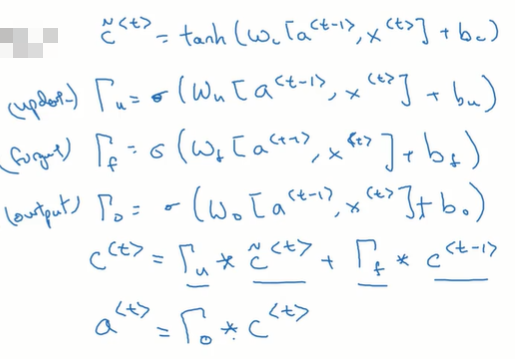 c̃^<t> = tanh(W_c[a^<t-1>, x^<t>] + b_c)
(update) Γ_u = σ(W_u[a^<t-1>, x^<t>] + b_u)
(forget) Γ_f = σ(W_f[a^<t-1>, x^<t>] + b_f)
(output) Γ_o = σ(W_o[a^<t-1>, x^<t>] + b_o)
c^<t> = Γ_u * c̃^<t> + Γ_f * c^<t-1>
a^<t> = Γ_o * c^<t>